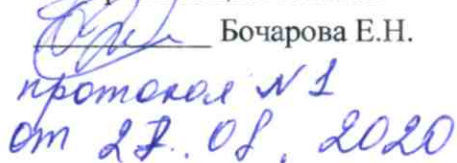 Бочарова Е.Н.
протокол №1
от 27.08.2020